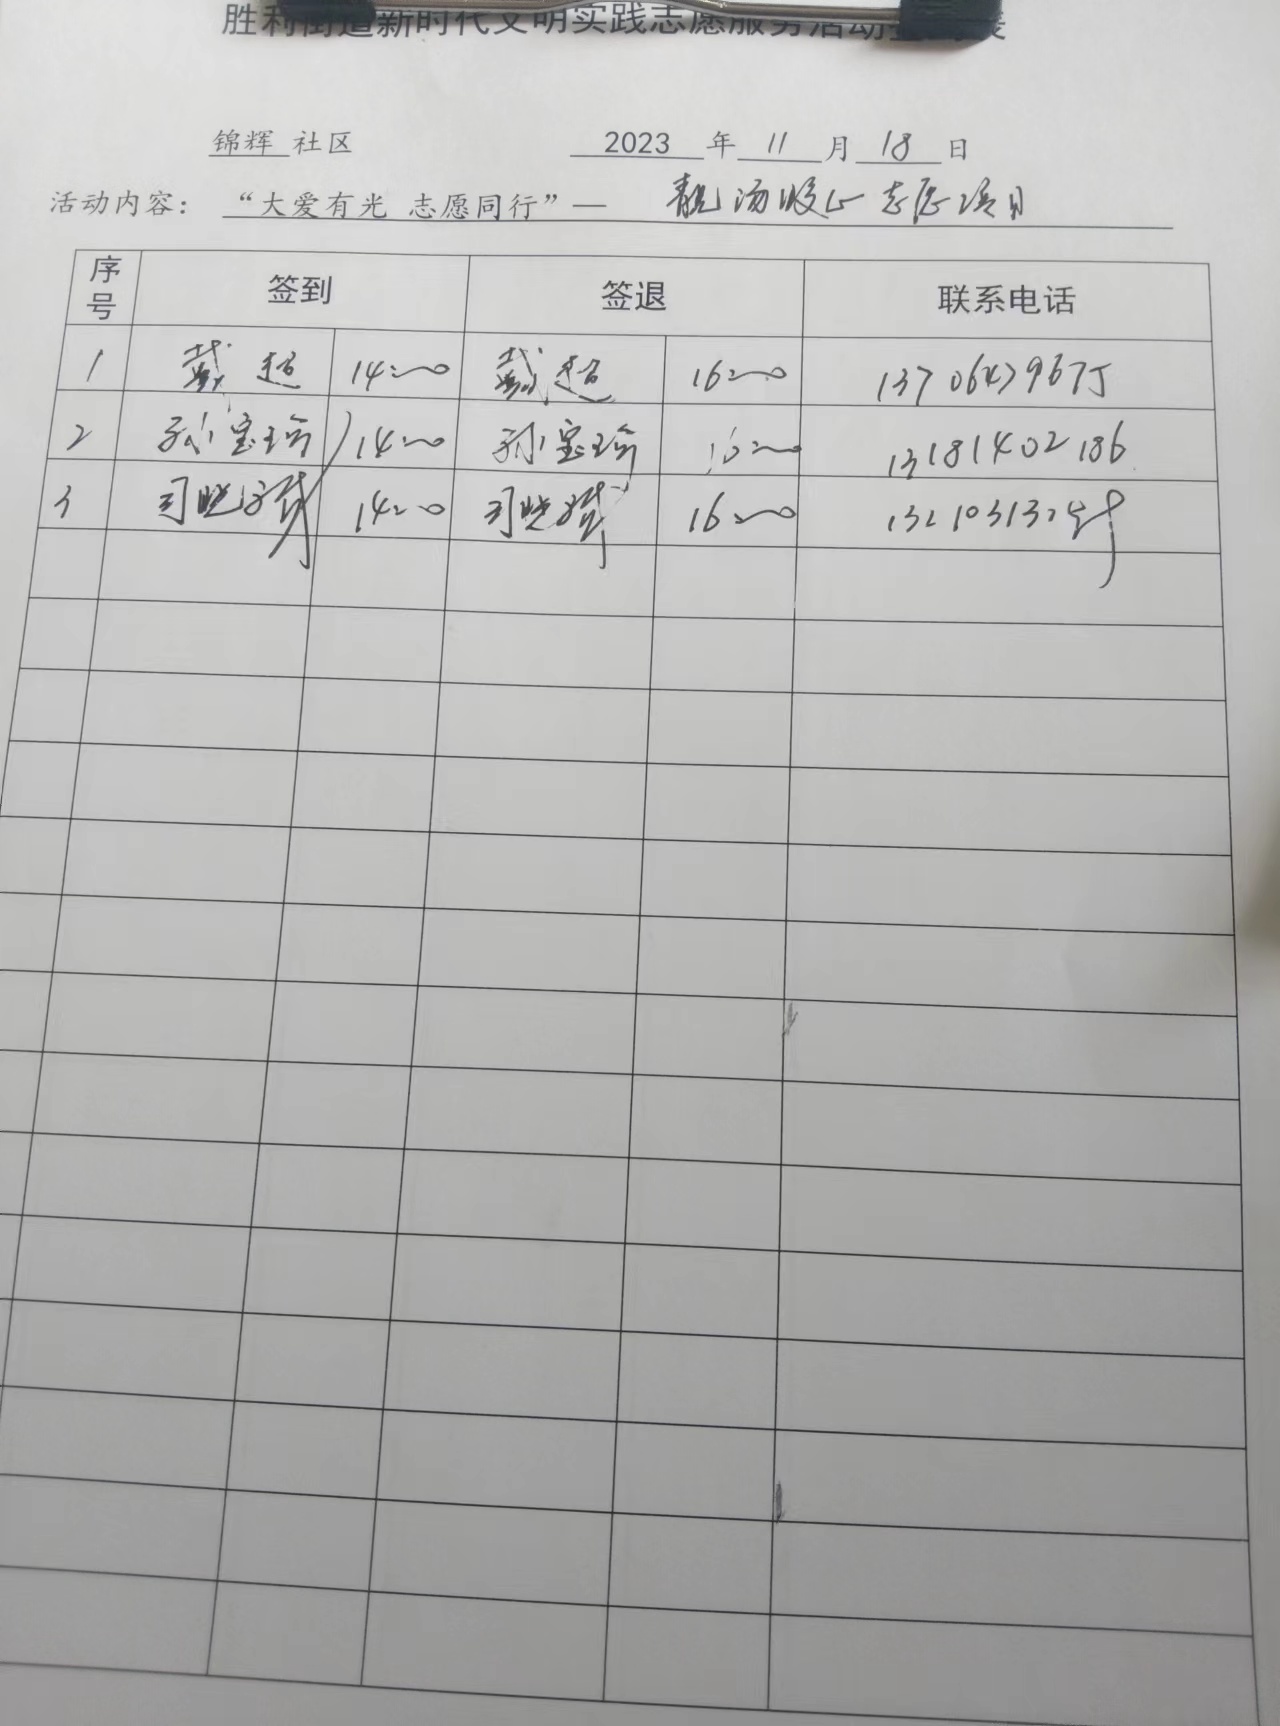 胜利街道新时代文明实践志愿服务活动签到表
锦辉 社区 2023 年 11 月 18 日
活动内容： “大爱有光 志愿同行”— 靓汤暖心志愿项目
序号 签到 签退 联系电话
1 戴超 14:00 戴超 16:00 13706479675
2 孙宝 14:00 孙宝 16:00 13181402186
3 司晓 14:00 司晓 16:00